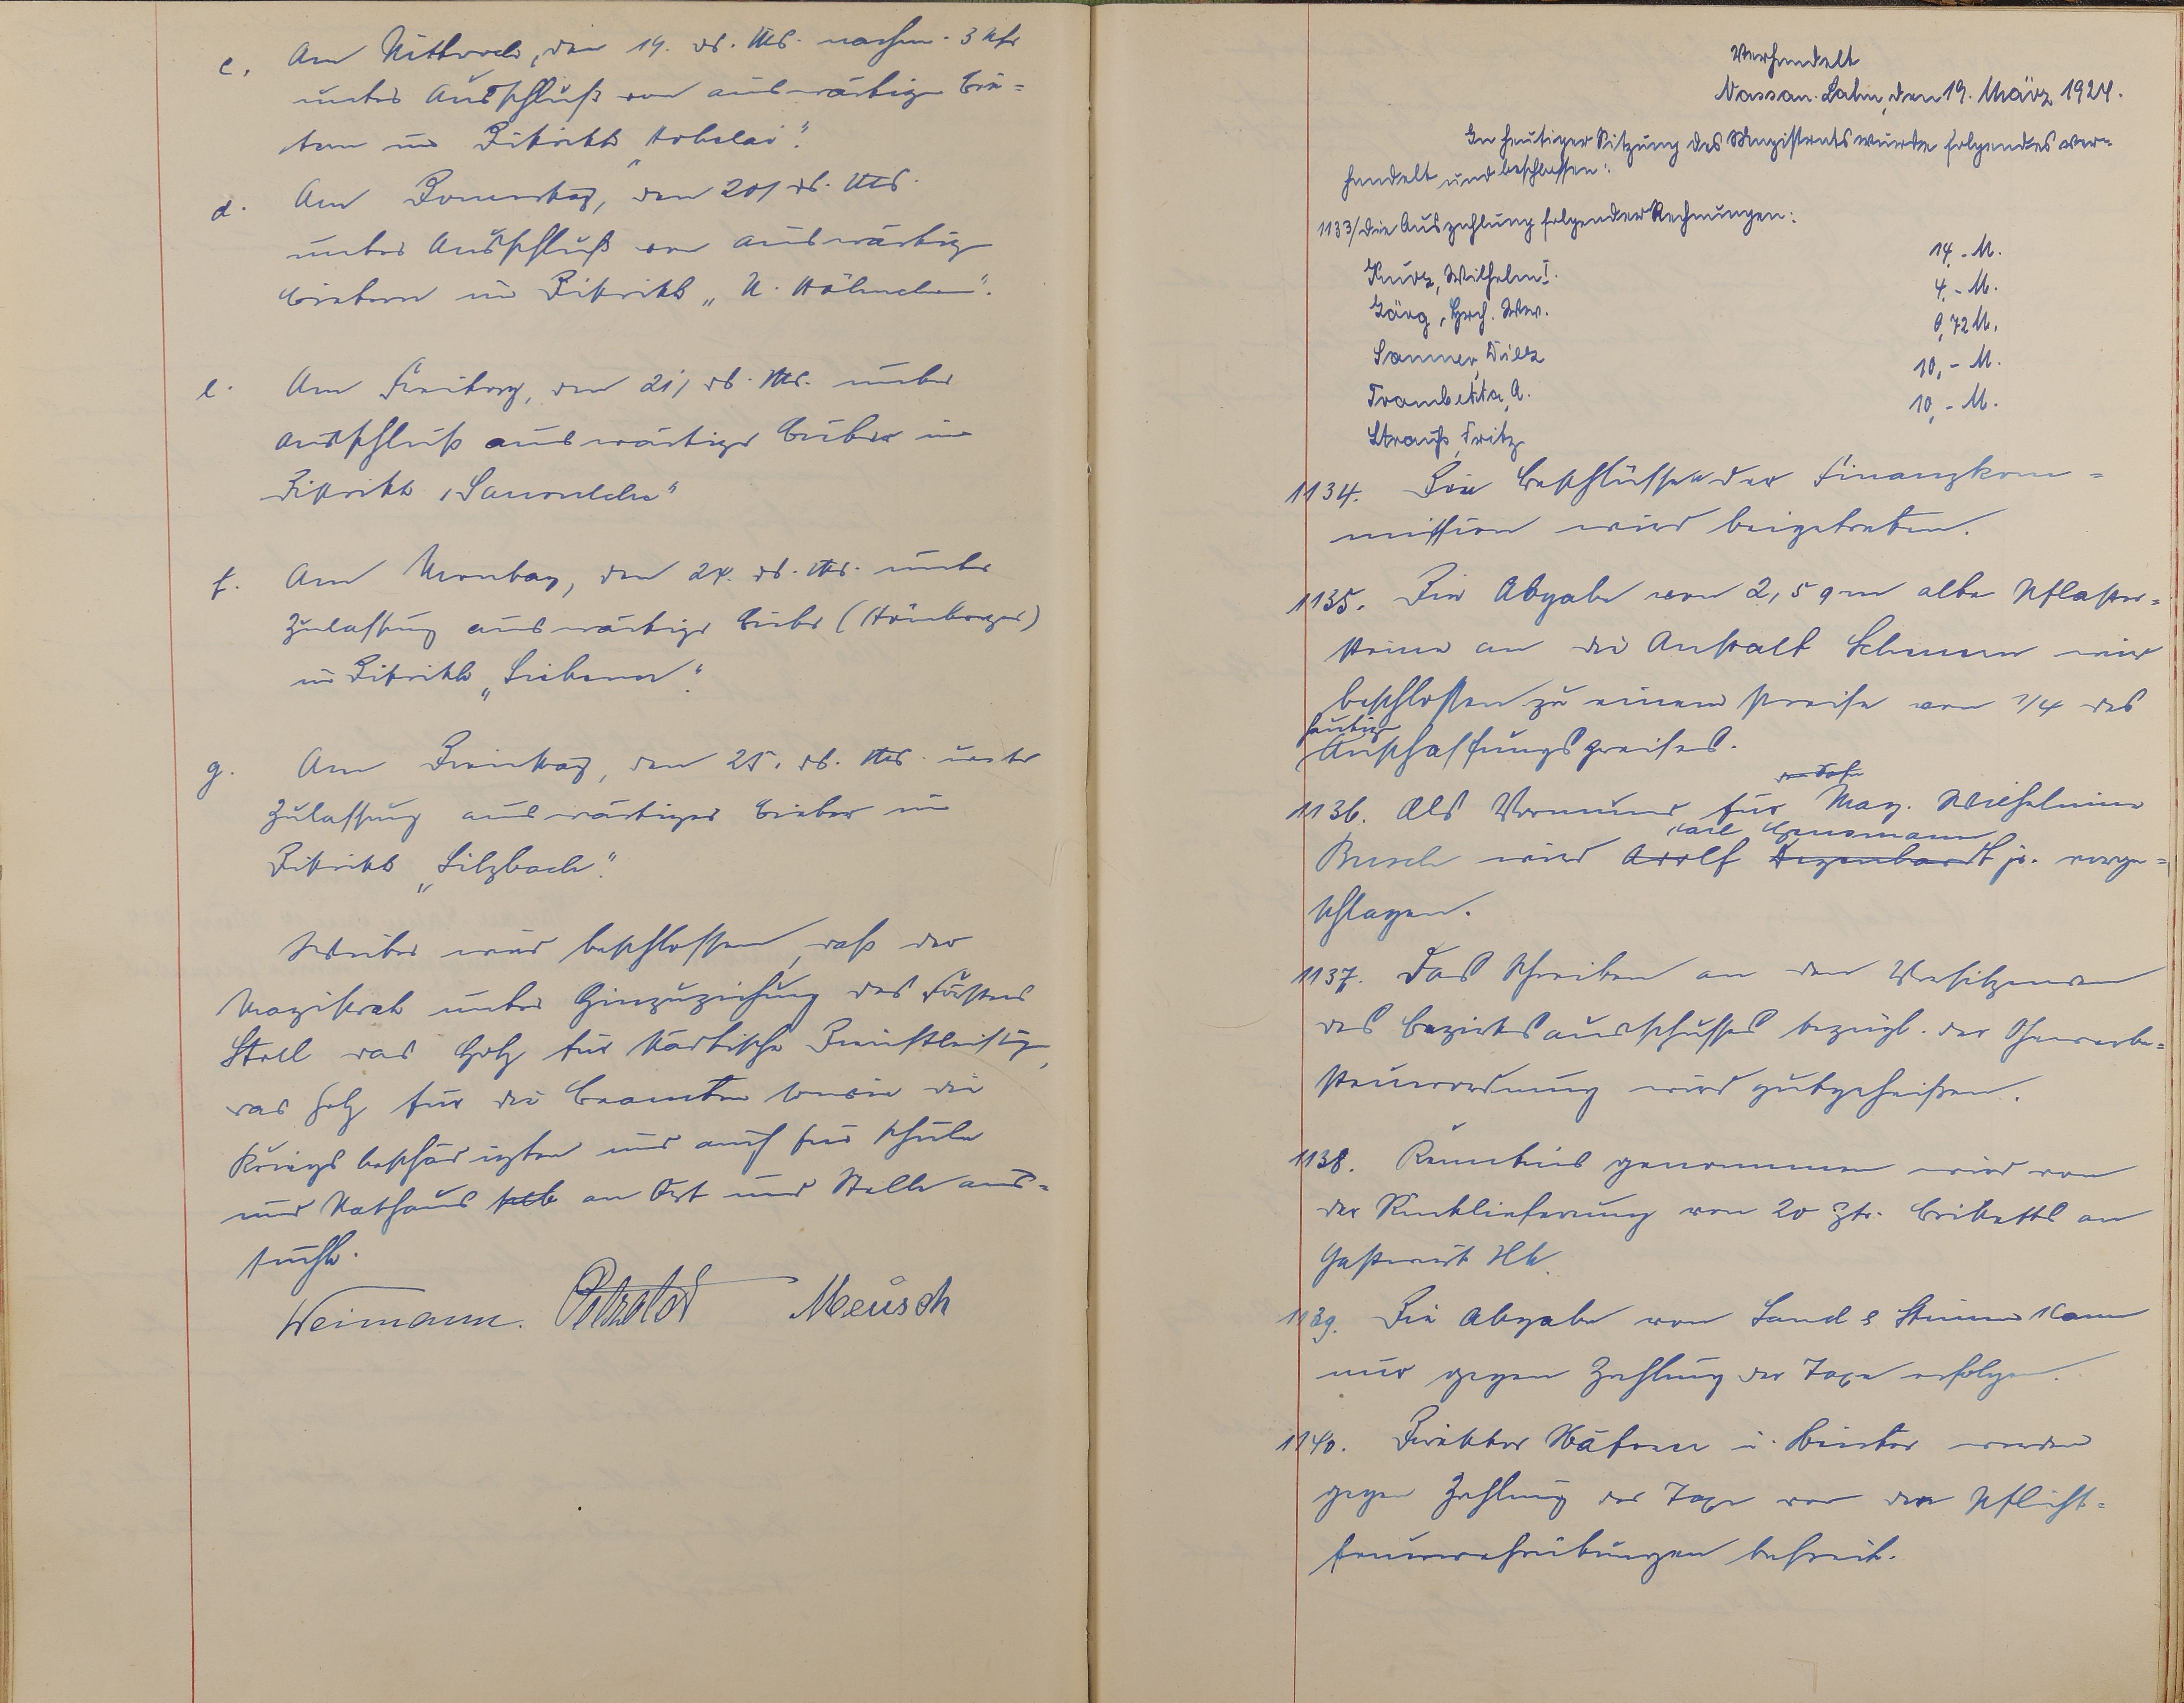 c. Am Mittwoch, den 19. ds. Mts. nachm. 3 Uhr
unter Ausschluß von auswärtigen Bie=
tern im Distrikt "
d. Am Donnerstag, den 20/ ds. Mts.
unter Ausschluß von auswärtigen
Bietern im Distrikt „
e. Am Freitag, den 21/ ds. Mts. unter
Ausschluß auswärtiger Bieter im
Distrikt
f. Am Montag, den 24. ds. Mts. unter
Zulassung auswärtiger Bieter (Hömberger)
im Distrikt
g. Am Dienstag, den 25. ds. Mts. unter
Zulassung auswärtiger Bieter im
Distrikt „Silzbach".
Weiter wird beschlossen, daß der
Magistrat unter Hinzuziehung des Försters
Stoll das Holz für städtische Dienstleistg,
das Holz für die Beamten sowie die
Kriegsbeschädigten und auch für Schule
und Rathaus an Ort und Stelle aus=
sucht.
Weimann. Meusch
Verhandelt
Nassau-Lahn, den 19. März 1924.
In heutiger Sitzung des Magistrats wurde folgendes ver=
handelt und beschlossen:
1133/ Die Auszahlung folgender Rechnungen:
14,- M.
Kurz, Wilhelm I.
4,- M.
Görg, Hrch. Ww.
0,72 M.
Sanner, Diez
10,- M.
Trombetta, A.
10,- M.
Strauß, Fritz
1134. Die Beschlüssen der Finanzkom=
mission wird beigetreten.
1135. Die Abgabe von 2,5 qm alte Pflaster=
steine an die Anstalt Scheuern wird
beschlossen zu einem Preise von 1/4 des
heutigen
Anschaffungspreises.
1136. Als Vormund für Mag. Wilhelmine
Carl
Busch wird Adolf jr. vorge=
schlagen.
1137. Das Schreiben an den Vorsitzenden
des Bezirksausschusses bezügl. der Gewerbe=
steuerordnung wird gutgeheißen.
1138. Kenntnis genommen wird von
der Rücklieferung von 20 Ztr. Briketts an
Gastwirt
1139. Die Abgabe von Sand & Steine kann
nur gegen Zahlung der Taxe erfolgen.
1140. Direktor u. Winter werden
gegen Zahlung der Taxe von den Pflicht=
feuerwehrübungen befreit.